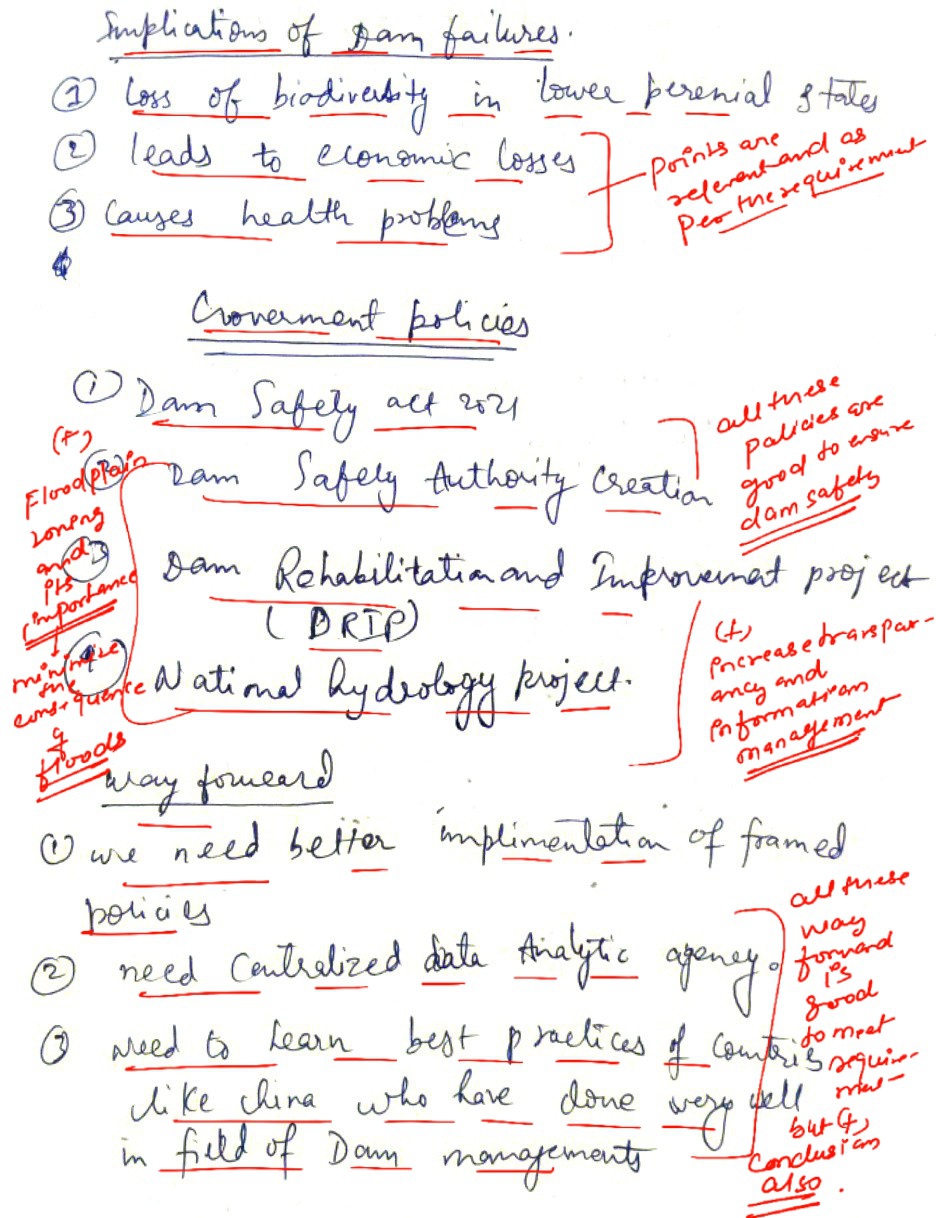 Implications of Dam failures.
① Loss of biodiversity in lower perenial states
② leads to economic losses
③ Causes health problems
points are
relevant and as
per the requirement
Goverment policies
① Dam Safety act 2021
② Dam Safety Authority Creation
③ Dam Rehabilitation and Improvemat project
(DRIP)
④ National hydrology project.
all these
policies are
good to ensure
dam safety
(+)
Floodplain
zoning
and
its
importance
minimize
the
consequence
of
floods
(+)
increase transpar-
ancy and
information
management
way forward
① we need better implimentation of framed
policies
② need Centralized data Analytic agency.
③ need to Learn best practices of Countries
like china who have done very well
in field of Dam managements
all these
way
forward
is
good
to meet
require-
ment
but (+)
Conclusion
also.